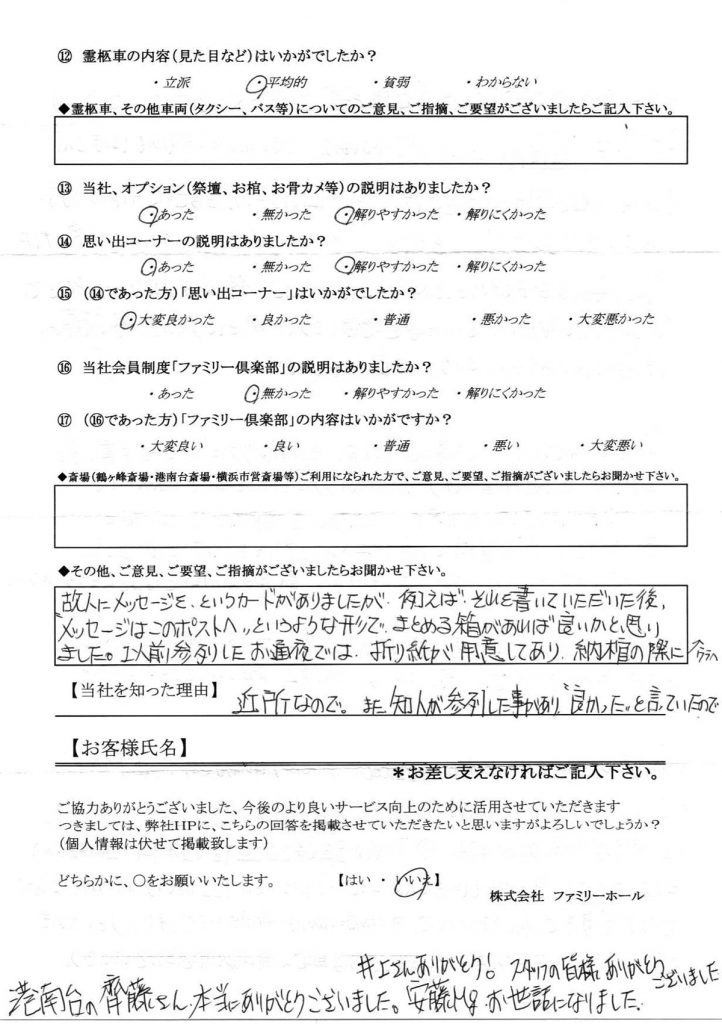 ⑫ 霊柩車の内容(見た目など)はいかがでしたか?
・立派 ・平均的 ・貧弱 ・わからない
◆霊柩車、その他車両(タクシー、バス等)についてのご意見、ご指摘、ご要望がございましたらご記入下さい。
⑬ 当社、オプション(祭壇、お棺、お骨カメ等)の説明はありましたか?
・あった ・無かった ・解りやすかった ・解りにくかった
⑭ 思い出コーナーの説明はありましたか?
・あった ・無かった ・解りやすかった ・解りにくかった
⑮ (⑭であった方)「思い出コーナー」はいかがでしたか?
・大変良かった ・良かった ・普通 ・悪かった ・大変悪かった
⑯ 当社会員制度「ファミリー倶楽部」の説明はありましたか?
・あった ・無かった ・解りやすかった ・解りにくかった
⑰ (⑯であった方)「ファミリー倶楽部」の内容はいかがですか?
・大変良い ・良い ・普通 ・悪い ・大変悪い
◆斎場(鶴ヶ峰斎場・港南台斎場・横浜市営斎場等)ご利用になられた方で、ご意見、ご要望、ご指摘がございましたらお聞かせ下さい。
◆その他、ご意見、ご要望、ご指摘がございましたらお聞かせ下さい。
故人にメッセージを、というカードがありましたが、例えば、それを書いていただいた後、
"メッセージはこのポストへ"というような形で、まとめる箱があれば良いかと思い
ました。以前参列したお通夜では、折り紙が用意してあり、納棺の際に
【当社を知った理由】 近所なので。また知人が参列した事があり"良かった"と言ていたので
【お客様氏名】
*お差し支えなければご記入下さい。
ご協力ありがとうございました、今後のより良いサービス向上のために活用させていただきます
つきましては、弊社HPに、こちらの回答を掲載させていただきたいと思いますがよろしいでしょうか?
(個人情報は伏せて掲載致します)
どちらかに、○をお願いいたします。 【はい ・ いいえ】
株式会社 ファミリーホール
井上さんありがとう! スタッフの皆様ありがとうございました
港南台の齊藤さん、本当にありがとうございました。安藤さん お世話になりました。